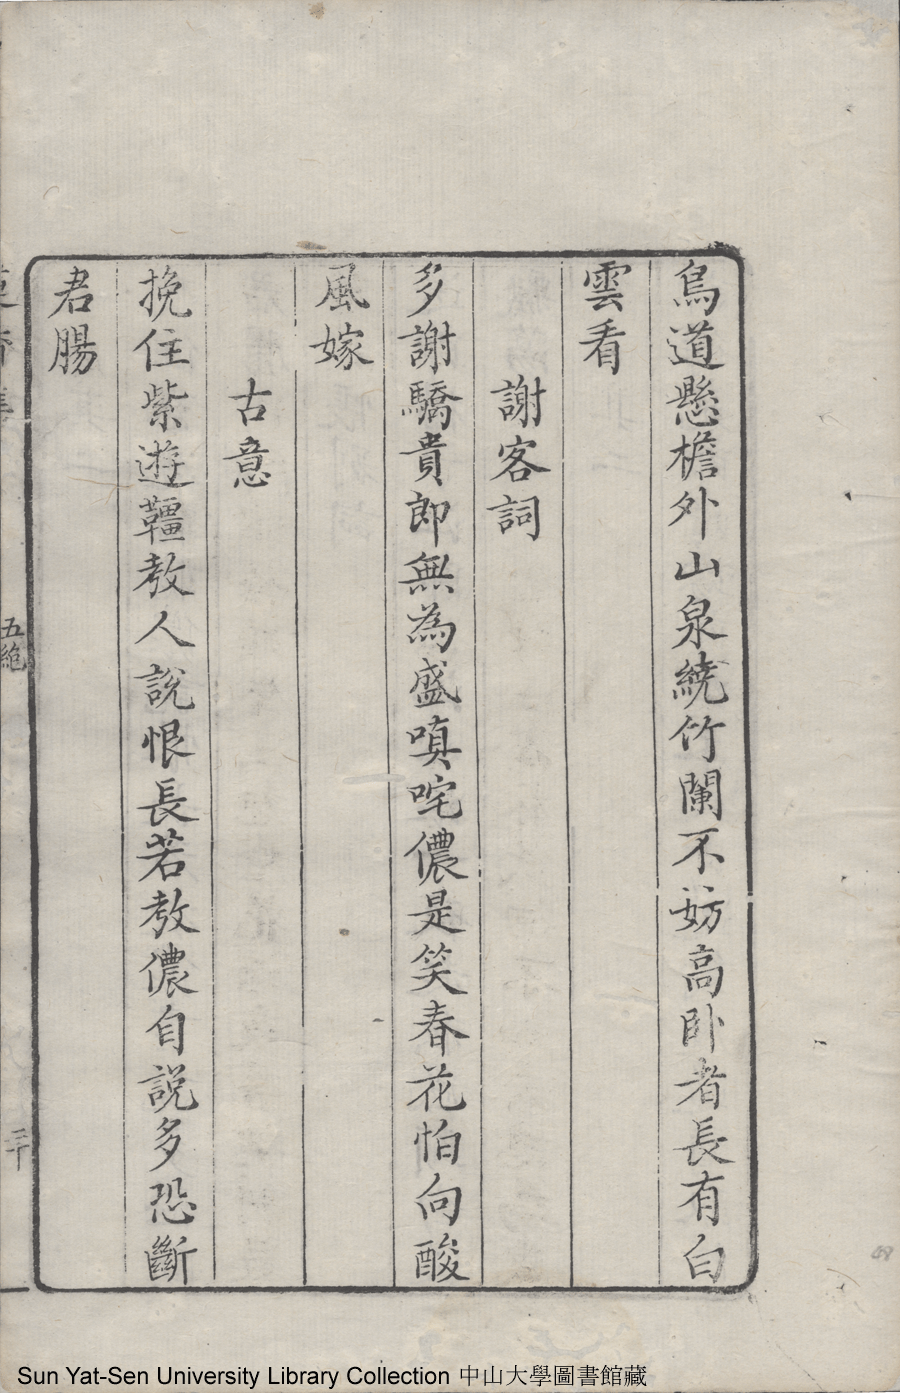 鳥道懸檐外山泉繞竹闌不妨高卧者長有白
雲看
謝客詞
多謝驕貴郎無為盛嗔咤儂是笑春花怕向酸
風嫁
古意
挽住紫遊韁教人說恨長若教儂自説多恐斷
君腸
五絶
Sun Yat-Sen University Library Collection 中山大學圖書館藏